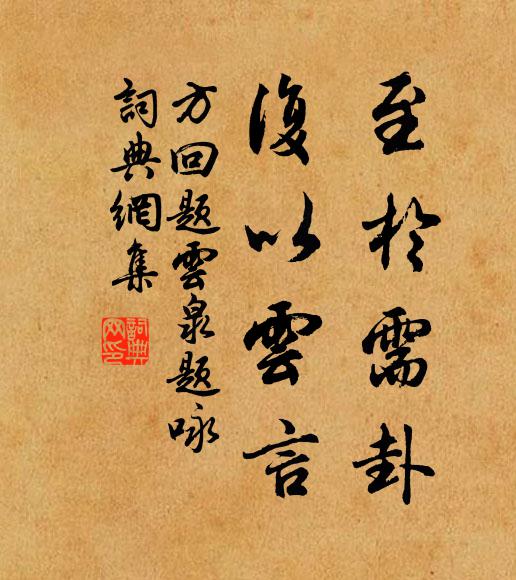 至於需卦
復以雲言
方回題雲泉題咏
詞典網集
詞典